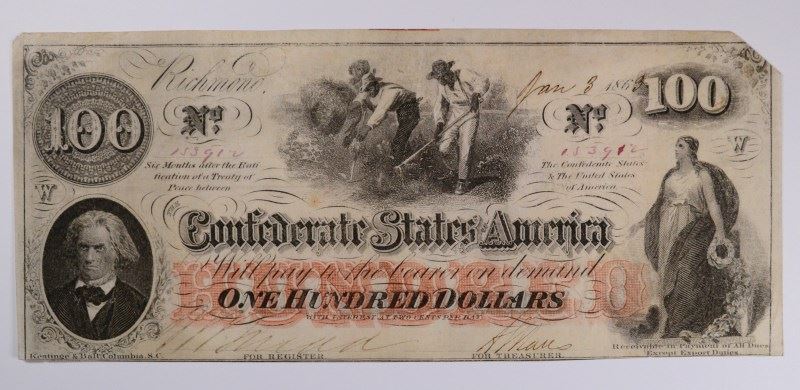 Richmond,
Jan 3 1863
100
100
No.
No.
153912
153912
Six Months after the Rati-
fication of a Treaty of
Peace between
The Confederate States
& The United States
of America
W
W
THE
Confederate States of America
Will pay to the bearer on demand
HUNDRED
ONE HUNDRED DOLLARS
WITH INTEREST AT TWO CENTS PER DAY
Keatinge & Ball Columbia, S.C.
FOR REGISTER
FOR TREASURER.
Receivable in Payment of All Dues
Except Export Duties.